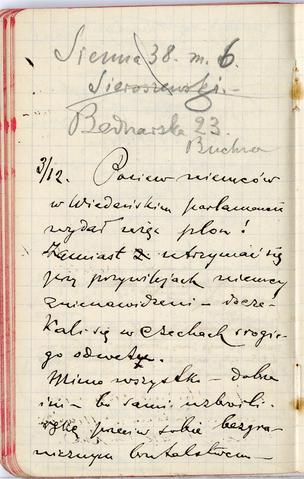 Sienna 38. m. 6.
Sieroszewski.-
Bednarska 23.
Buchna
3/12. Posiew niemców
w Wiedeńskim parlamencie
wydał swój plon!
Zamiast utrzymać się
przy przywilejach niemcy
znienawidzeni – docze-
kali się w Czechach srogie-
go odwetu.
Mimo wszystko – dobrze
im – bo sami uzbroili
rękę przeciw sobie bezgra-
nicznym brutalstwem –